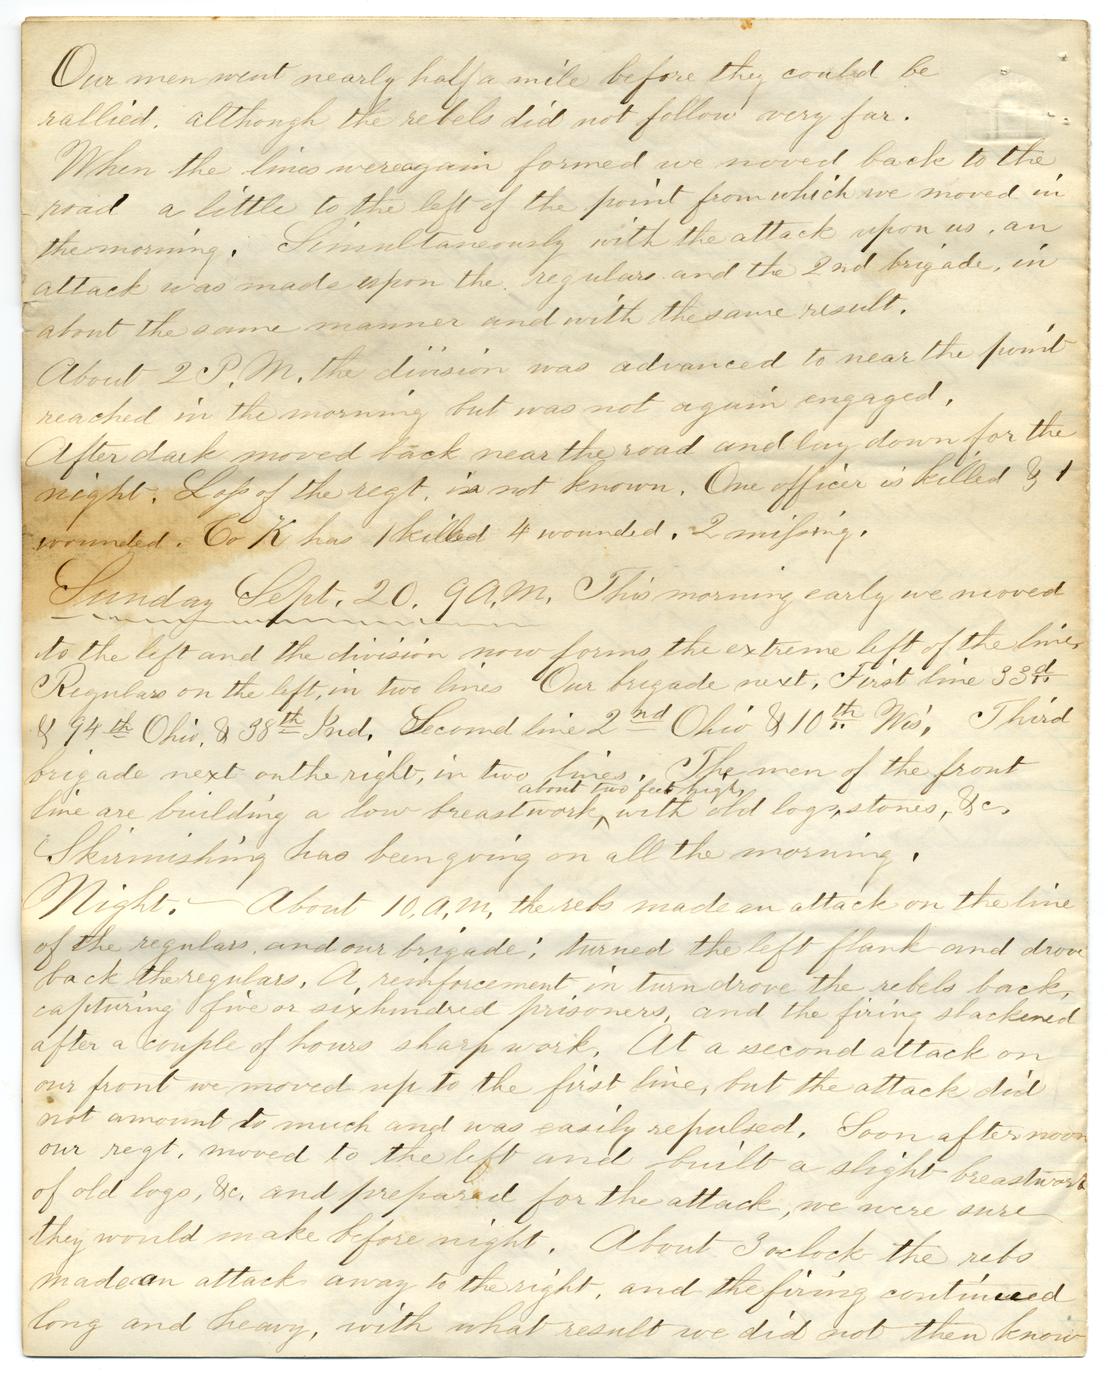 Our men went nearly half a mile before they could be
rallied. although the rebels did not follow very far.
When the lines were again formed we moved back to the
road a little to the left of the point from which we moved in
the morning. Simultaneously with the attack upon us, an
attack was made upon the regulars and the 2nd brigade, in
about the same manner and with the same result.
About 2 P.M. the division was advanced to near the point
reached in the morning but was not again engaged.
After dark moved back near the road and lay down for the
night. Loss of the regt. is not known. One officer is killed & 1
wounded. Co K has 1 killed 4 wounded, 2 missing.
Sunday Sept. 20. 9 A.M. This morning early we moved
to the left and the division now forms the extreme left of the line,
Regulars on the left, in two lines Our brigade next, First line 33rd
& 94th Ohio, & 38th Ind. Second line 2nd Ohio & 10th Wis. Third
brigade next on the right, in two lines. The men of the front
about two feet high,
line are building a low breastwork, with old logs, stones, &c.
Skirmishing has been going on all the morning.
Night. — About 10, A, M, the rebs made an attack on the line
of the regulars, and our brigade; turned the left flank and drove
back the regulars. A reinforcement in turn drove the rebels back,
capturing five or six hundred prisoners, and the firing slackened
after a couple of hours sharp work. At a second attack on
our front we moved up to the first line, but the attack did
not amount to much and was easily repulsed. Soon after noon
our regt. moved to the left and built a slight breastwork
of old logs, &c. and prepared for the attack, we were sure
they would make before night. About 3 oclock the rebs
made an attack away to the right, and the firing continued
long and heavy, with what result we did not then know